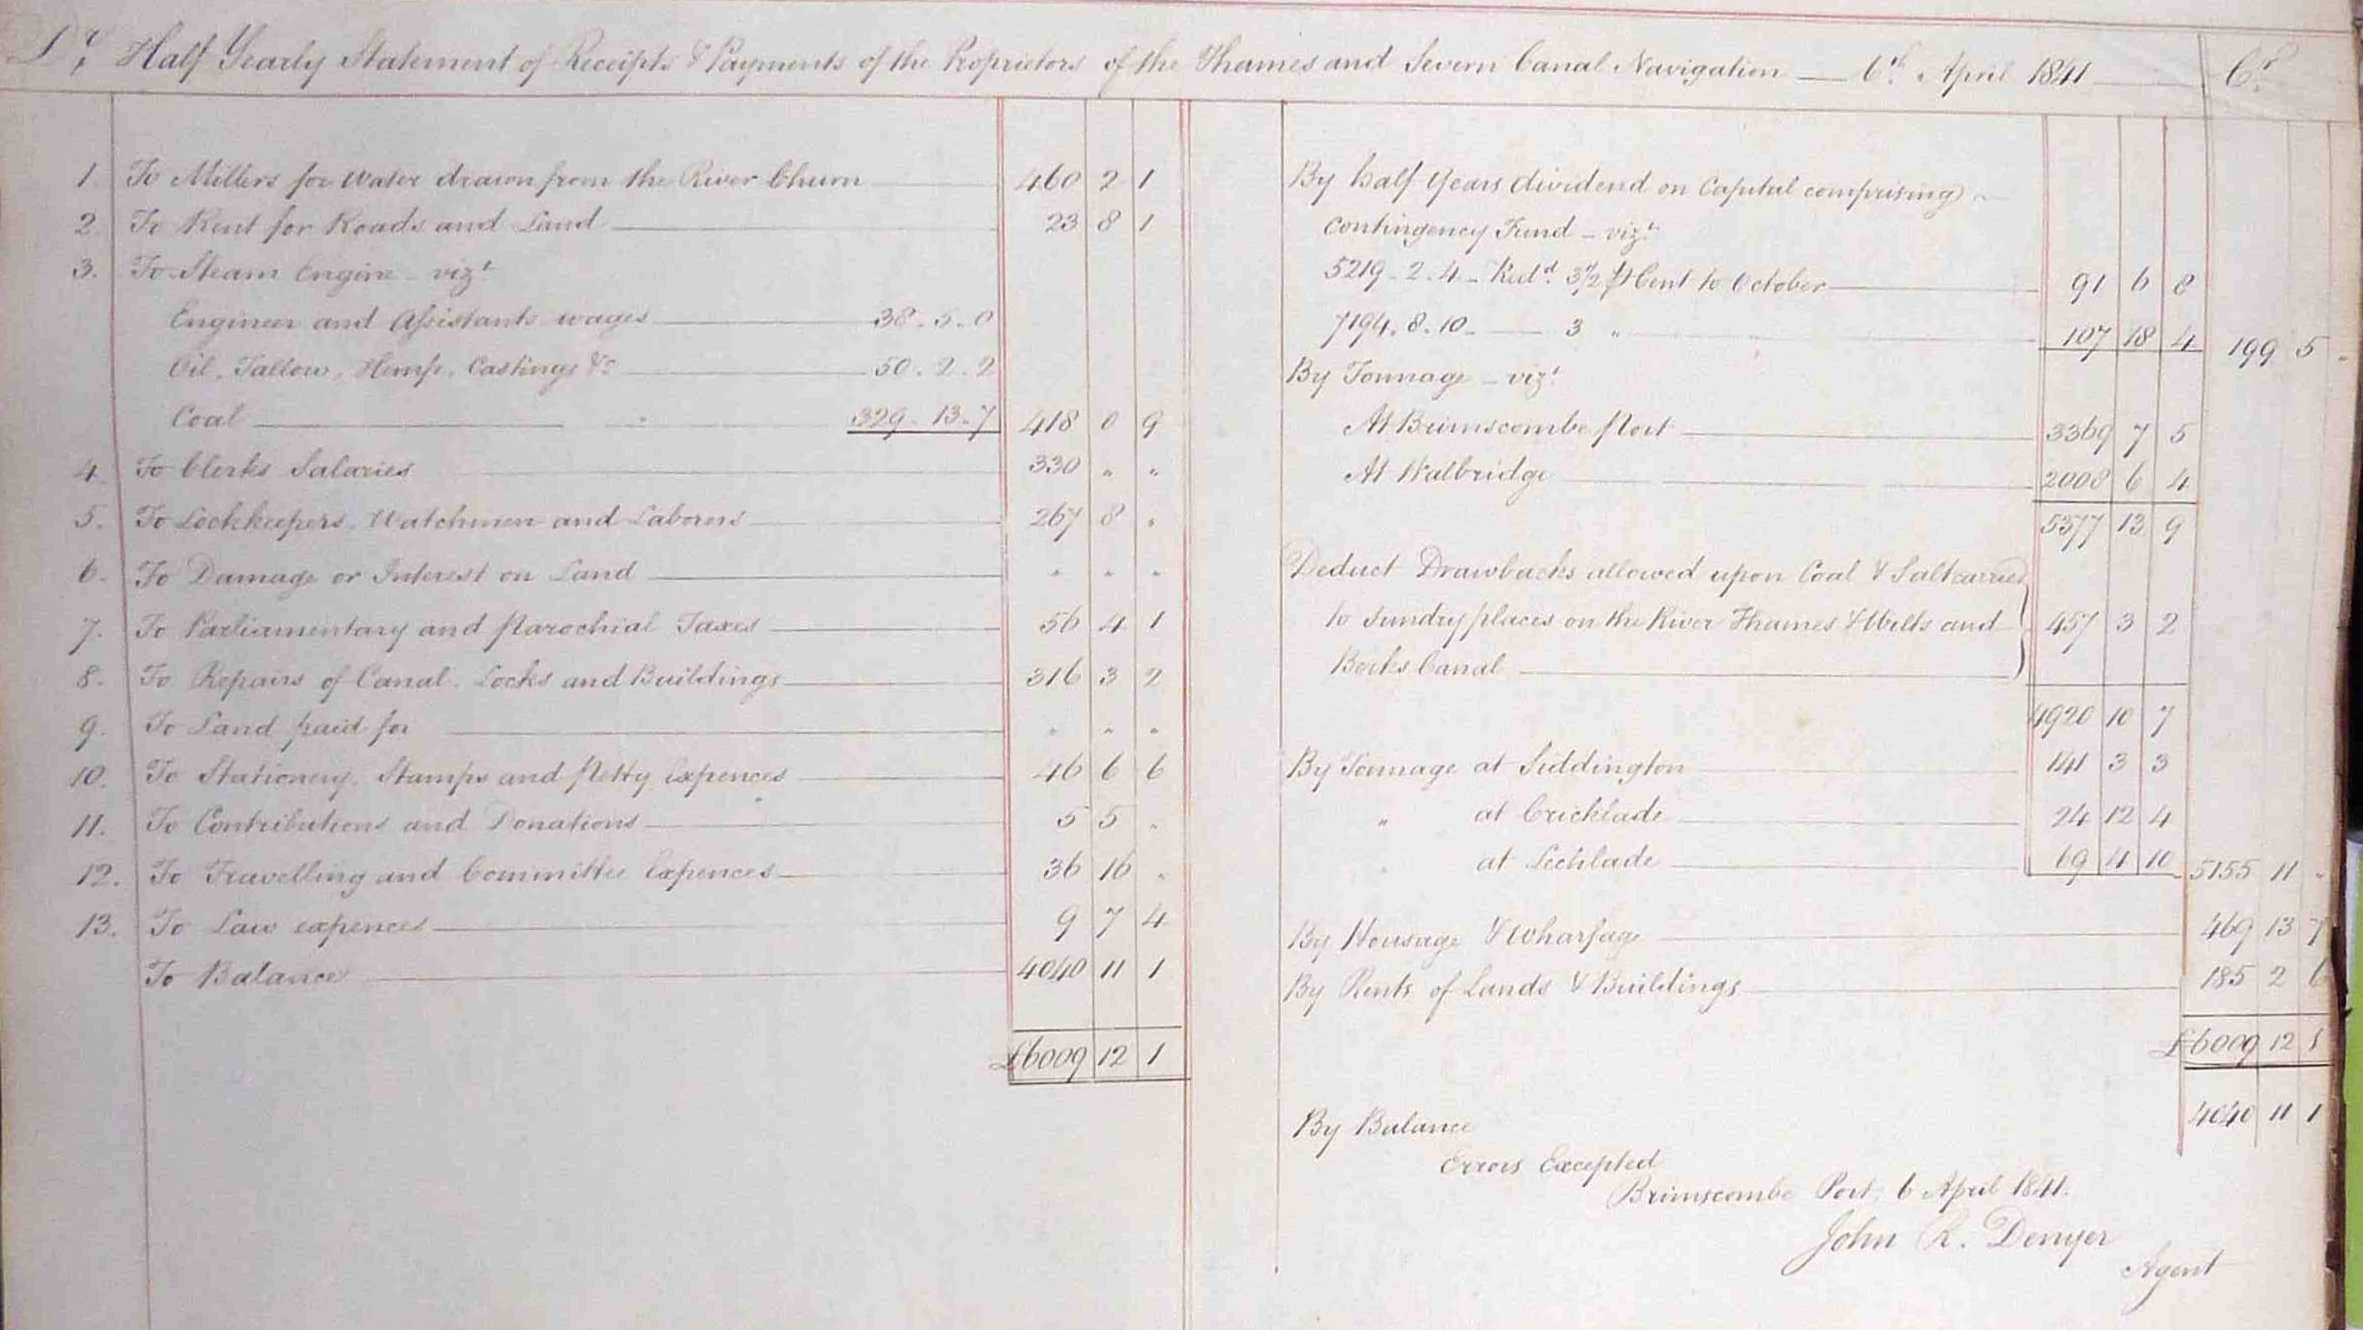 Dr Half Yearly Statement of Receipts & Payments of the Proprietors of the Thames and Severn Canal Navigation — 6th April 1841 Cr
1. To Millers for Water drawn from the River Churn 460 2 1
2. To Rent for Roads and Land 23 8 1
3. To Steam Engine - vizt
Engineer and Assistants wages 38.5.0
Oil, Tallow, Hemp, Castings &c 50.2.2
Coal " 329.13.7 418 0 9
4. To Clerks Salaries 330 " "
5. To Lockkeepers, Watchmen and Laborers 267 8 "
6. To Damage or Interest on Land " " "
7. To Parliamentary and Parochial Taxes 56 4 1
8. To Repairs of Canal, Locks and Buildings 316 3 2
9. To Land paid for " " "
10. To Stationery, Stamps and Petty Expences 46 6 6
11. To Contributions and Donations 5 5 "
12. To Travelling and Committee Expences 36 16 "
13. To Law expences 9 7 4
To Balance 4040 11 1
£6009 12 1
By half Years dividend on Capital comprising
Contingency Fund - vizt
5219.2.4 - Redd 3½ P Cent to October 91 6 8
7194.8.10 - 3 " " 107 18 4 199 5 -
By Tonnage - vizt
At Brimscombe Port 3369 7 5
At Walbridge 2008 6 4
5377 13 9
Deduct Drawbacks allowed upon Coal & Salt carried
to sundry places on the River Thames & Wilts and 457 3 2
Berks Canal
4920 10 7
By Tonnage at Siddington 141 3 3
" at Cricklade 24 12 4
" at Lechlade 69 4 10 5155 11 -
By Housage & Wharfage 469 13 7
By Rents of Lands & Buildings 185 2 6
£6009 12 1
By Balance 4040 11 1
Errors Excepted
Brimscombe Port, 6 April 1841.
John R. Denyer
Agent